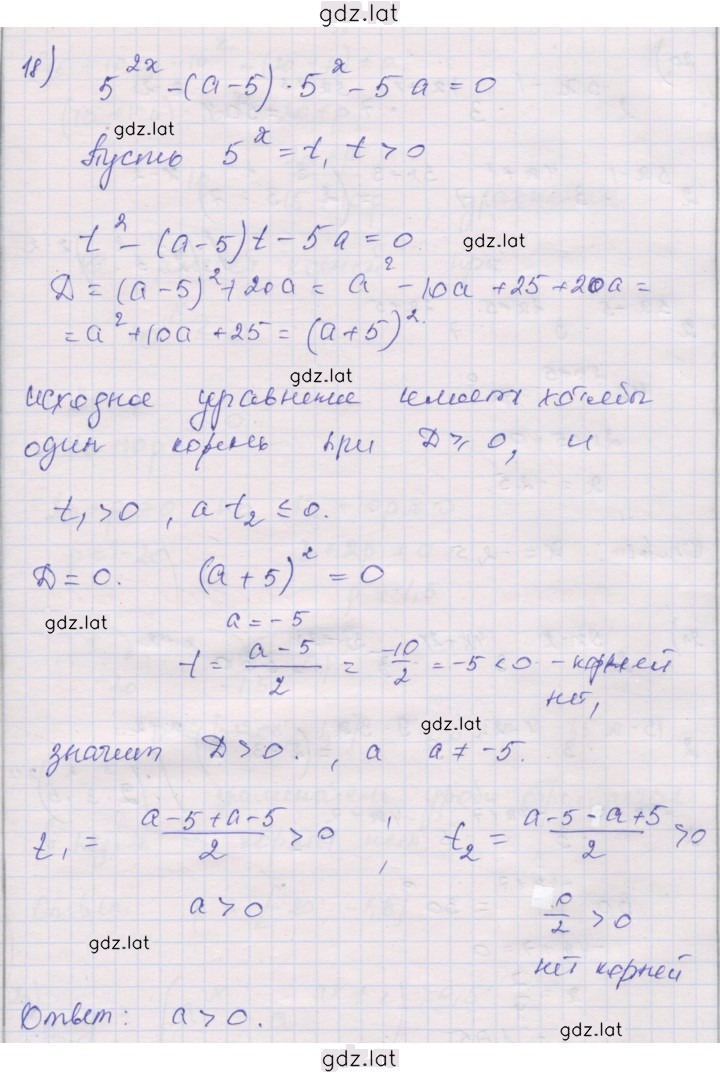 gdz.lat
18) 5^{2x} - (a-5) · 5^x - 5a = 0
gdz.lat
Пусть 5^x = t, t > 0
t^2 - (a-5)t - 5a = 0
gdz.lat
D = (a-5)^2 + 20a = a^2 - 10a + 25 + 20a =
= a^2 + 10a + 25 = (a+5)^2.
gdz.lat
исходное уравнение имеет хотя бы
один корень при D ≥ 0, и
t₁ > 0, a t₂ ≤ 0.
D = 0. (a+5)^2 = 0
gdz.lat
a = -5
t = \frac{a-5}{2} = \frac{-10}{2} = -5 < 0 - корней
нет,
gdz.lat
значит D > 0. , a a ≠ -5.
t₁ = \frac{a-5+a-5}{2} > 0 ; t₂ = \frac{a-5-a+5}{2} > 0
a > 0 \frac{0}{2} > 0
gdz.lat
нет корней
Ответ: a > 0.
gdz.lat
gdz.lat